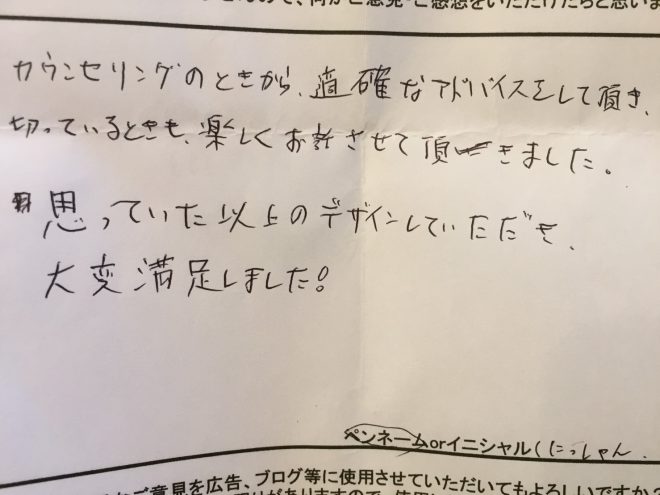 何かご意見・ご感想をいただけたらと思いま
カウンセリングのときから、適確なアドバイスをして頂き、
切っているときも、楽しくお話させて頂きました。
思っていた以上のデザインしていただき、
大変満足しました!
ペンネームorイニシャル(にっしゃん
ご意見を広告、ブログ等に使用させていただいてもよろしいですか?